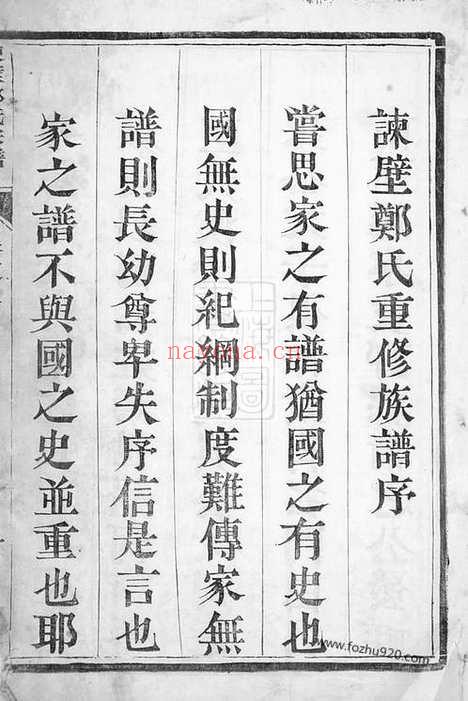 諫壁鄭氏重修族譜序
嘗思家之有譜猶國之有史也
國無史則紀綱制度難傳家無
譜則長幼尊卑失序信是言也
家之譜不與國之史並重也耶
nayona.cn
www.fozhu920.com